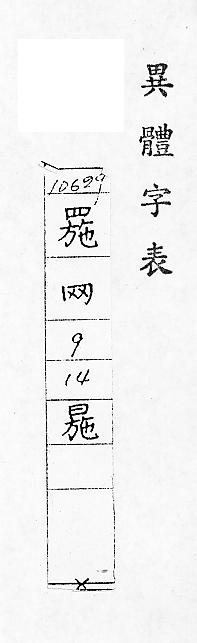 異體字表
10699
网
9
14